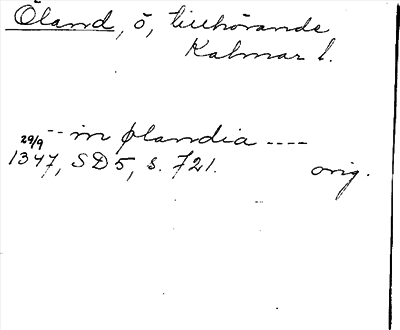 Öland, ö, tillhörande
Kalmar l.
-- in ølandia ----
29/9 1347, SD 5, s. 721.
orig.